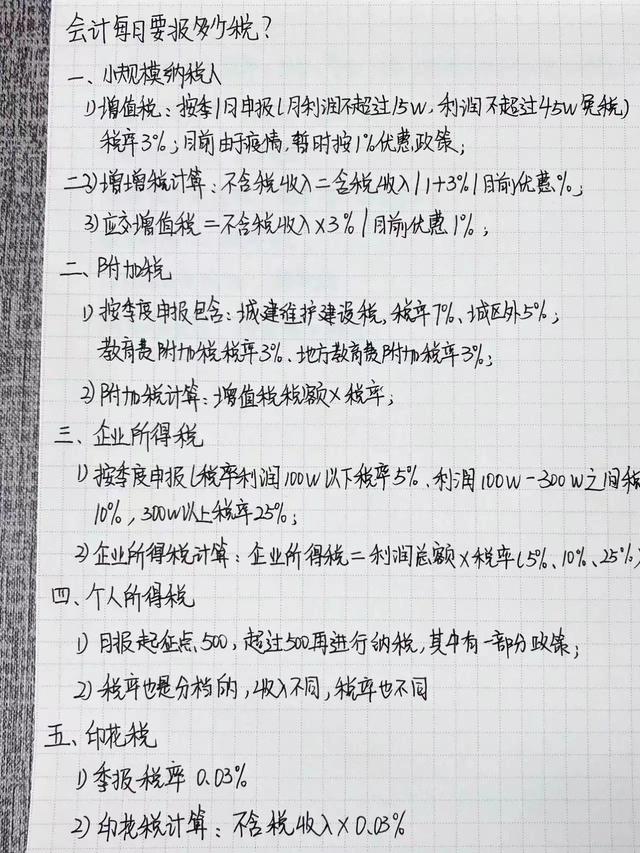 会计每日要报多少税？
一、小规模纳税人
1)增值税：按季1月申报(月利润不超过15W,利润不超过45W免税)
税率3%；目前由于疫情,暂时按1%优惠政策；
二2)增增税计算：不含税收入=含税收入/1+3%/目前优惠%；
3)应交增值税=不含税收入×3%/目前优惠1%；
二、附加税
1)按季度申报包含：城建维护建设税,税率7%、城区外5%；
教育费附加税税率3%、地方教育费附加税率3%；
2)附加税计算：增值税税额×税率；
三、企业所得税
1)按季度申报(税率利润100W以下税率5%、利润100W-300W之间税
10%，300W以上税率25%；
2)企业所得税计算：企业所得税=利润总额×税率(5%、10%、25%)
四、个人所得税
1)月报起征点500，超过500再进行纳税,其中有一部分政策；
2)税率也是分档的,收入不同,税率也不同
五、印花税
1)季报税率0.03%
2)印花税计算：不含税收入×0.03%